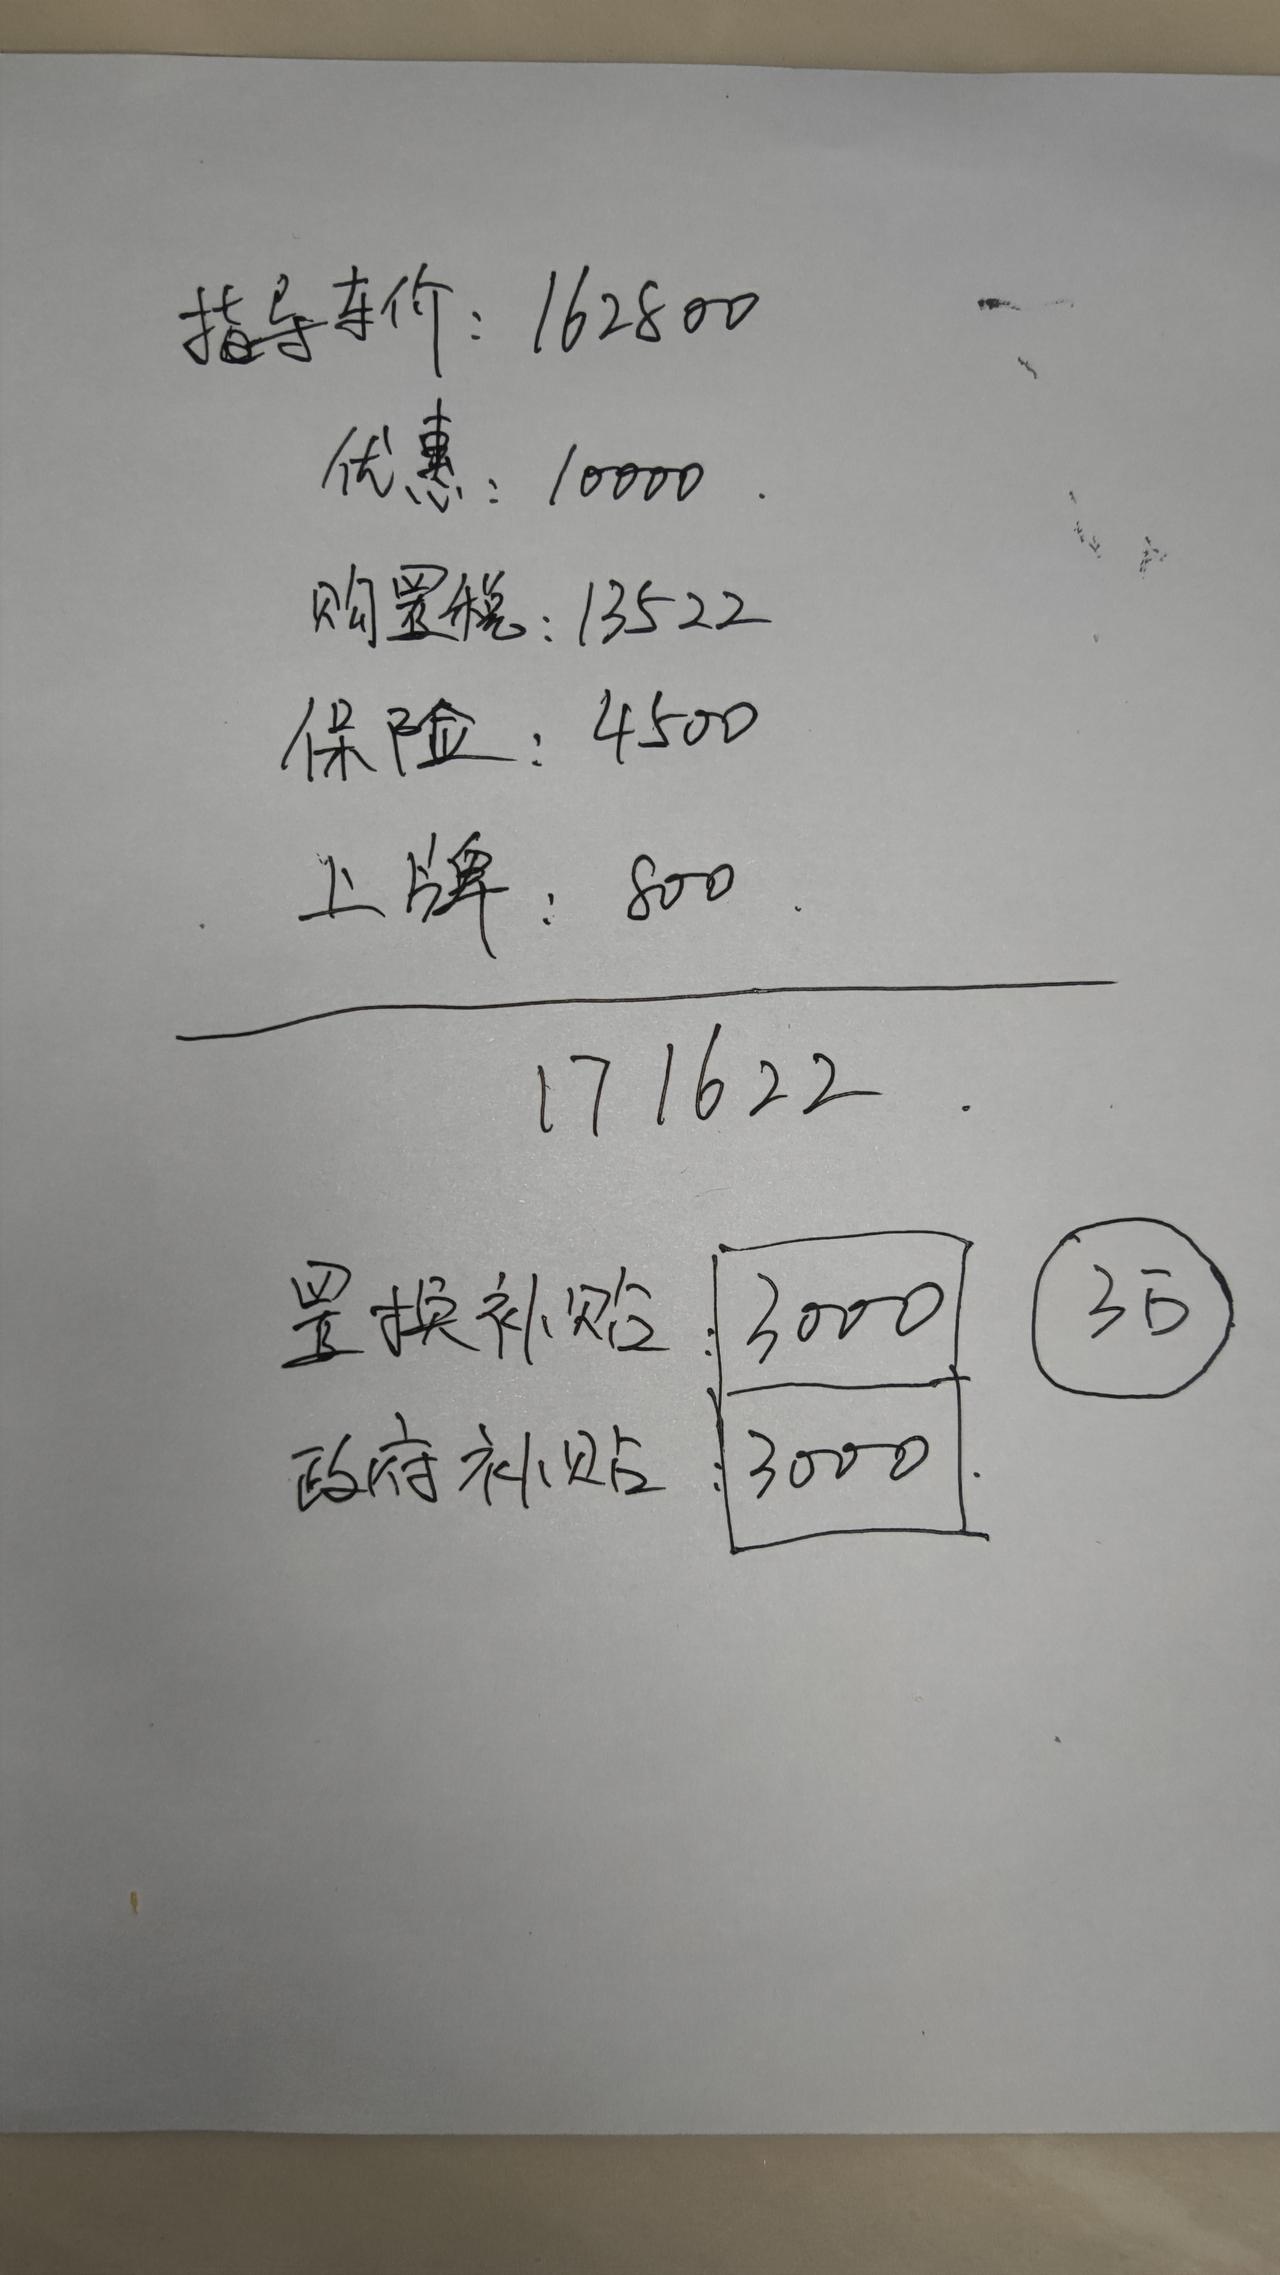 指导车价：162800
优惠：10000．
购置税：13522
保险：4500
上牌：800．
171622．
置换补贴：3000
政府补贴：3000．